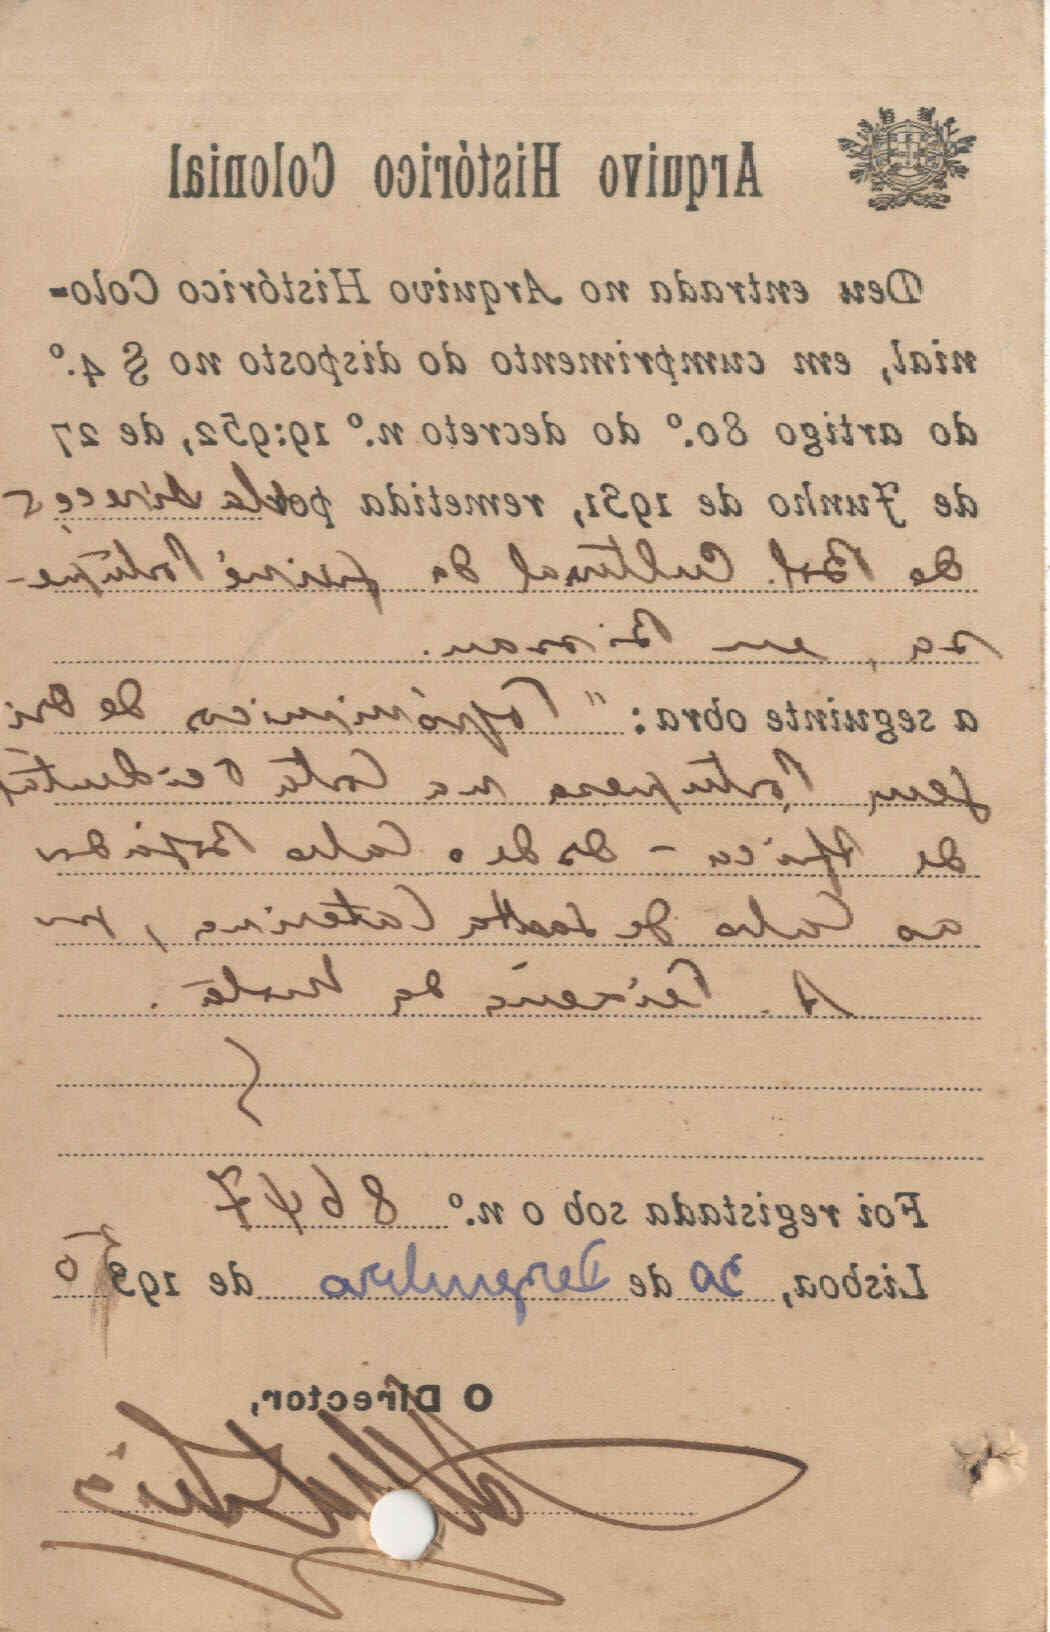 Arquivo Histórico Colonial
Deu entrada no Arquivo Histórico Colo-
nial, em cumprimento do disposto no § 4.º
do artigo 80.º do decreto n.º 19:952, de 27
de Junho de 1931, remetida pela Direcç
do Bol. Cultural da Guiné Portugue-
sa, em Bissau.
a seguinte obra: "Topónimos de Ori
gem Portuguesa na Costa Ocidental
de África - desde o Cabo Bojador
ao Cabo de Santa Caterina, por
A. Teixeira da Mota.
Foi registada sob o n.º 8647
Lisboa, 30 de Dezembro de 1950
O Director,